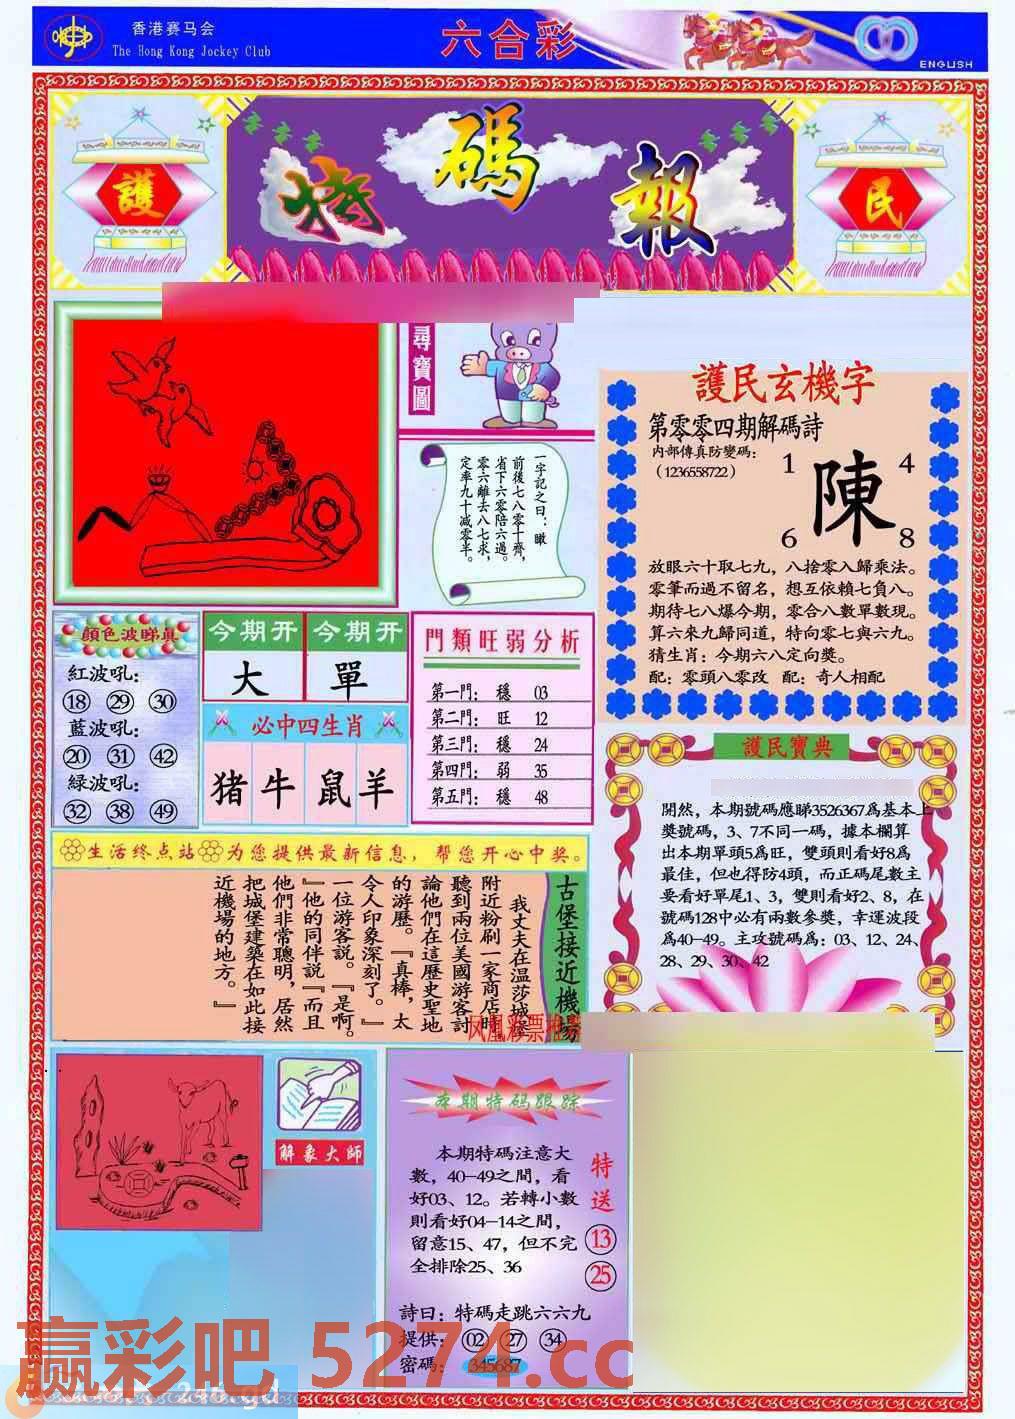 香港赛马会
The Hong Kong Jockey Club
六合彩
ENGLISH
護
特碼報
民
尋寶圖
一字記之曰：瞰
前後七八零十齊，
省下六零陪六過。
零六離去八七求，
定率九十減零半。
護民玄機字
第零零四期解碼詩
内部傳真防變碼：
（1236558722）
1 4
陳
6 8
放眼六十取七九，八捨零入歸乘法。
零筆而過不留名，想互依賴七負八。
期待七八爆今期，零合八數單數現。
算六來九歸同道，特向零七與六九。
猜生肖：今期六八定向獎。
配：零頭八零改 配：奇人相配
顏色波睇真
紅波吼：
18 29 30
藍波吼：
20 31 42
緑波吼：
32 38 49
今期开 今期开
大 單
必中四生肖
猪 牛 鼠 羊
門類旺弱分析
第一門： 穩 03
第二門： 旺 12
第三門： 穩 24
第四門： 弱 35
第五門： 穩 48
護民寶典
開然，本期號碼應睇3526367爲基本上
獎號碼，3、7不同一碼，據本欄算
出本期單頭5爲旺，雙頭則看好8爲
最佳，但也得防4頭，而正碼尾數主
要看好單尾1、3，雙則看好2、8，在
號碼128中必有兩數參獎，幸運波段
爲40—49。主攻號碼爲：03、12、24、
28、29、30、42
生活终点站 为您提供最新信息，帮您开心中奖。
古堡接近機場
我丈夫在温莎城堡
附近粉刷一家商店時
聽到兩位美國游客討
論他們在這歷史聖地
的游歷。『真棒，太
令人印象深刻了。』
一位游客説。『是啊。
』他的同伴説『而且
他們非常聰明，居然
把城堡建築在如此接
近機場的地方。』
凤凰彩票推荐
解象大師
本期特码跟踪
本期特码注意大
數，40—49之間，看
好03、12。若轉小數
則看好04—14之間，
留意15、47，但不完
全排除25、36
特送
13
25
詩曰：特碼走跳六六九
提供：02 27 34
密碼：345687
赢彩吧 5274.cc
246.gd